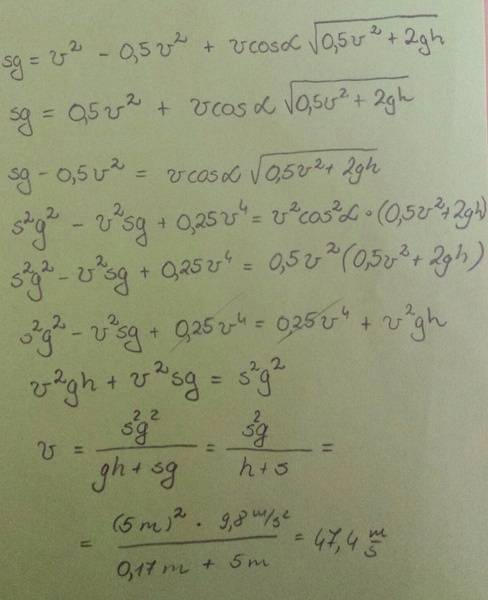 sg = v² - 0,5v² + v cosα √(0,5v² + 2gh)
sg = 0,5v² + v cosα √(0,5v² + 2gh)
sg - 0,5v² = v cosα √(0,5v² + 2gh)
s²g² - v²sg + 0,25v⁴ = v²cos²α · (0,5v² + 2gh)
s²g² - v²sg + 0,25v⁴ = 0,5v² (0,5v² + 2gh)
s²g² - v²sg + 0,25v⁴ = 0,25v⁴ + v²gh
v²gh + v²sg = s²g²
v = s²g² / (gh + sg) = s²g / (h + s) =
= (5m)² · 9,8 m/s² / (0,17m + 5m) = 47,4 m/s